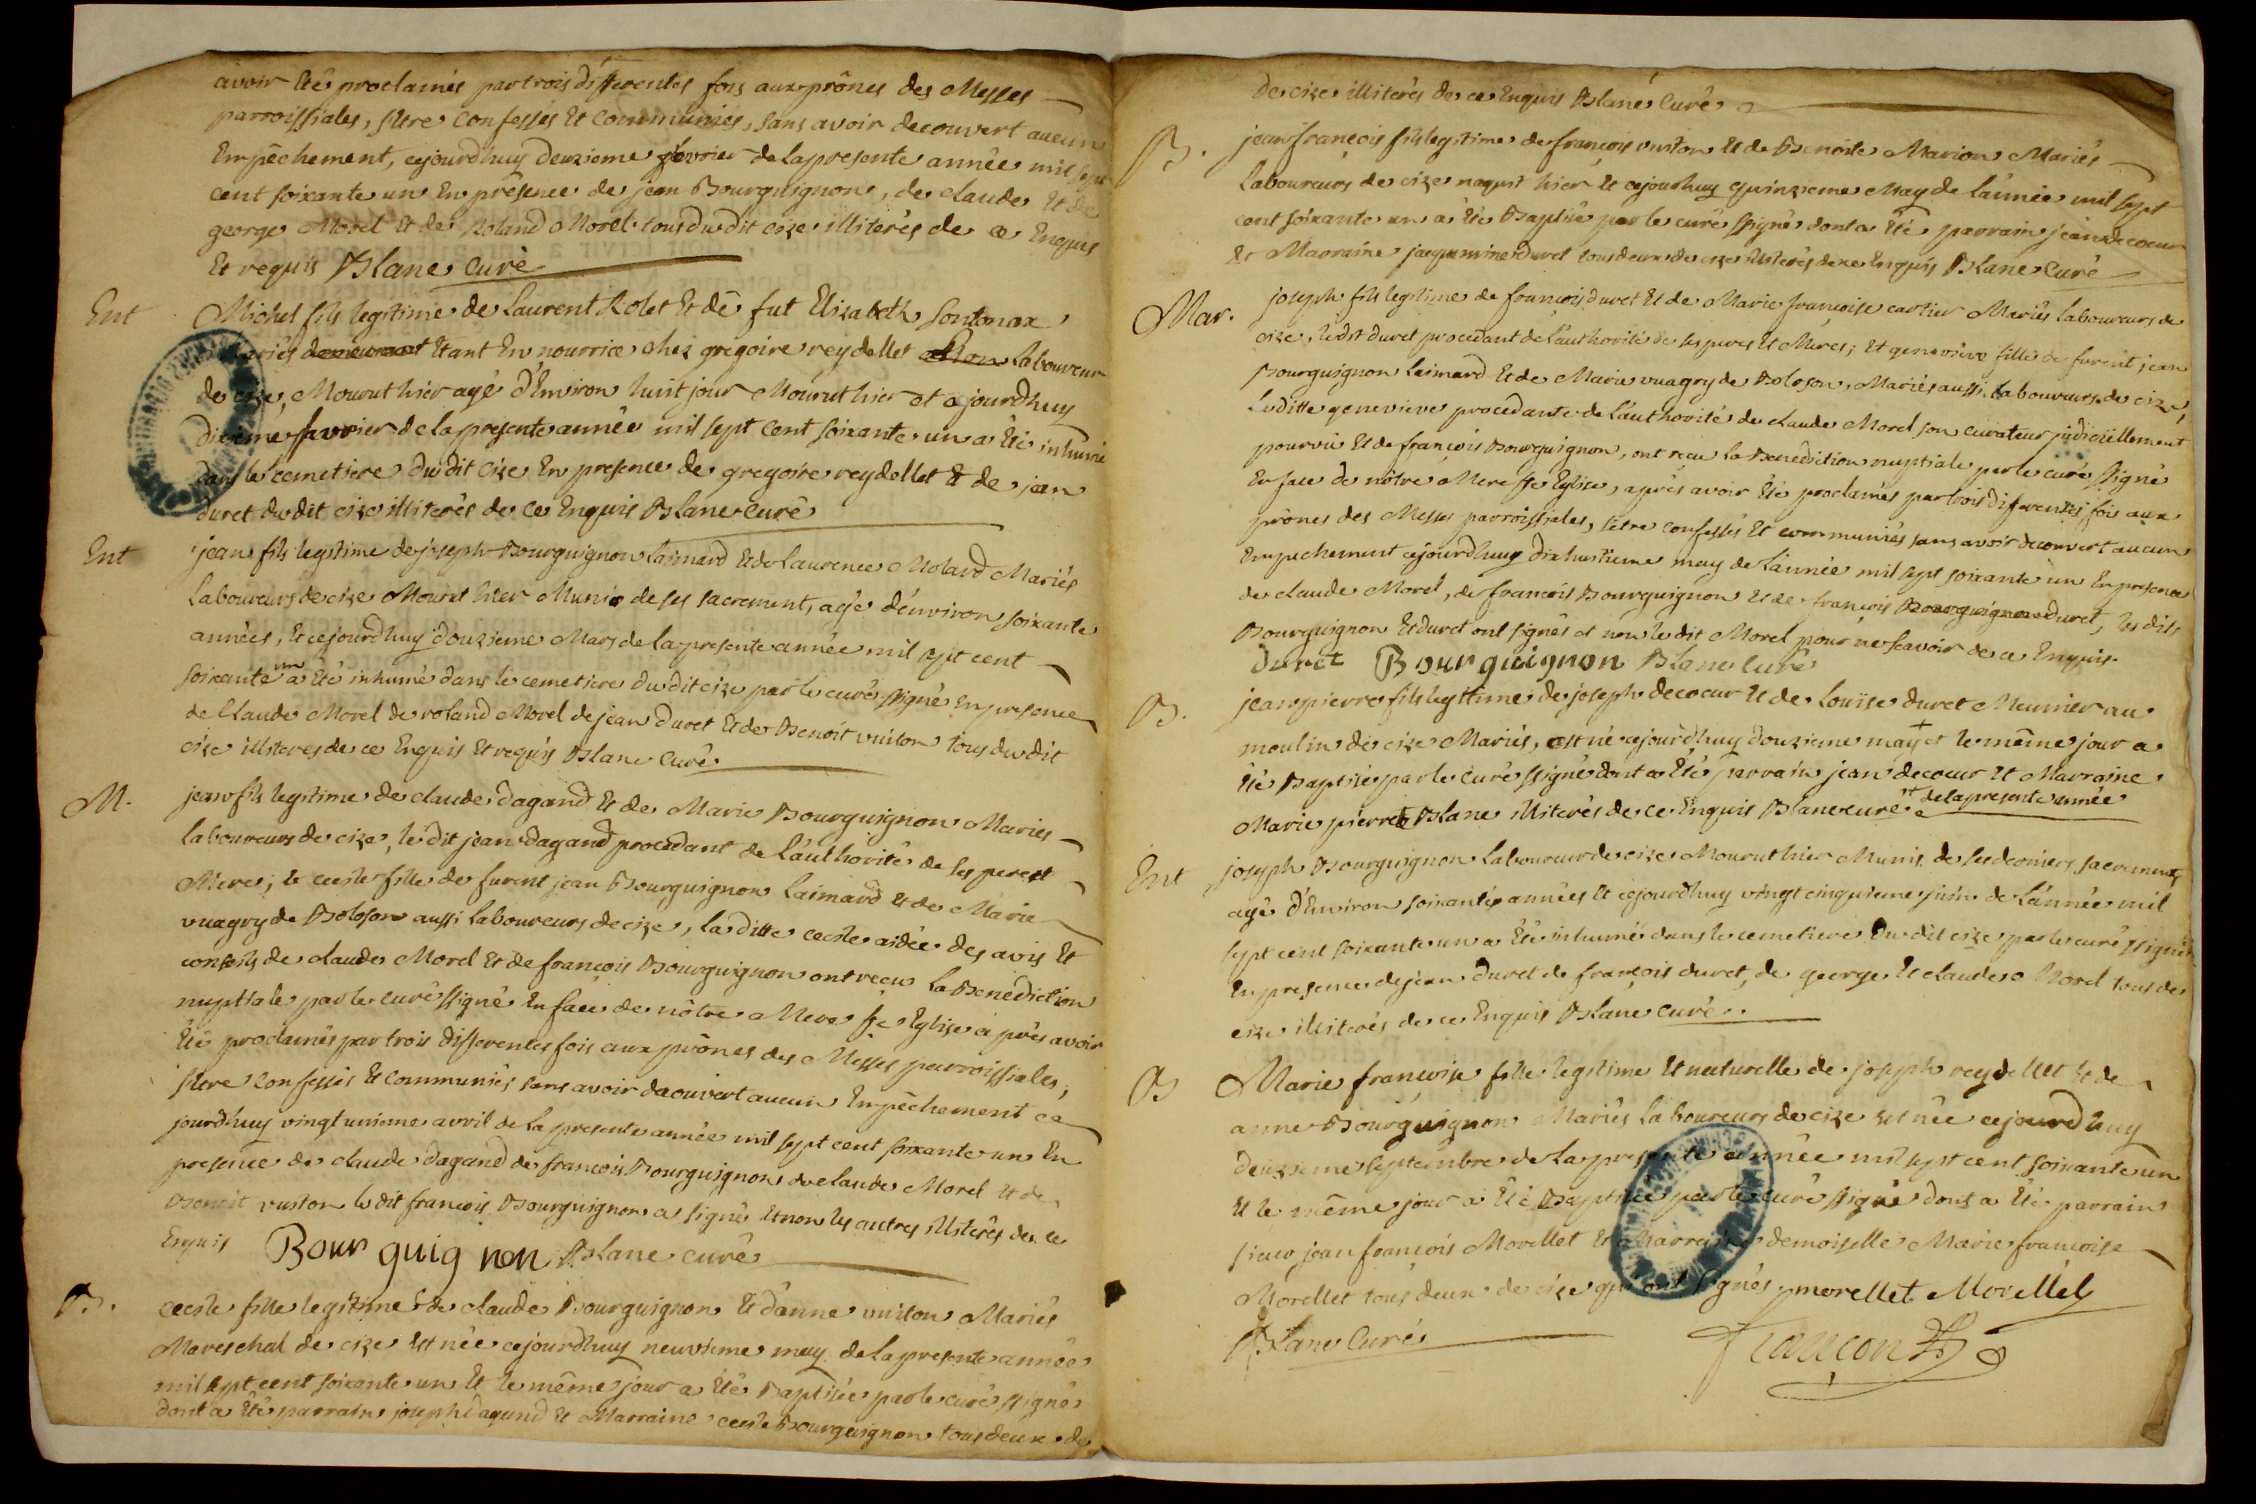 avoir Eté proclamés par trois differentes fois aux prônes des Messes
parroissiales, s'etre Confessés Et Communiés, sans avoir decouvert aucun
Empêchement, cejourdhuy deuzieme fevrier de la presente année mil sept
cent soixante un En presence de jean Bourguignon, de claude Et de
george Morel Et de Roland Morel tous du dit cize illiterés de ce Enquis
Et requis Blane Curé
Ent
Michel fils legitime de Laurent Rolet Et de fut Elizabeth Sontonax
Mariés Etant En nourrice chez gregoire reydellet Laboureur
de cize, Mourut hier agé d'Environ huit jour Mourut hier et cejourdhuy
dixieme favrier de la presente année mil sept Cent soixante un a Eté inhumé
dans le cemetiere du dit Cize En presence de gregoire reydellet Et de jean
duret du dit cize illiterés de ce Enquis Blane Curé
Ent
jean fils legitime de joseph Bourguignon Laimard Et de Laurence Molard Mariés
Laboureurs de cize Mourut hier Munis de ses sacrement, agé d'environ soixante
années, Et cejourdhuy douzieme Mars de la presente année mil sept cent
soixante un a Eté inhumé dans le cemetiere du dit cize par le curé ssigné En presence
de Claude Morel de roland Morel de jean duret Et de Benoit vuiton tous du dit
cize illiteres de ce Enquis Et requis Blane Curé
M.
jean fils legitime de claude dagand Et de Marie Bourguignon Mariés
laboureurs de cize, le dit jean dagand procedant de L'authorité de ses pere Et
Mere; Et cecile fille de furent jean Bourguignon Laimard Et de Marie
vuagry de Boloson aussi laboureurs de cize, la ditte cecile aidée des avis Et
conseils de claude Morel Et de françois Bourguignon ont recu la Benediction
nuptiale par le curé ssigné En face de nôtre Mere ste Eglise après avoir
Eté proclamés par trois differentes fois aux prônes des Messes parroissiales,
s'etre Confessés Et Communiés sans avoir decouvert aucun Empêchement ce
jourdhuy vingt unieme avril de la presente année mil sept cent soixante un En
presence de claude dagand de françois Bourguignon de claude Morel Et de
Benoit vuiton le dit françois Bourguignon a signé Et non les autres illiterés de ce
Enquis Bour guig non Blane curé
B.
cecile fille legitime de claude Bourguignon Et d'anne vuiton Mariés
Mareschal de cize Est née cejourdhuy neuvieme may de la presente année
mil sept cent soixante un Et le même jour a Eté Baptisée par le curé ssigné
dont a Eté parrain joseph dagand Et Marraine cecile Bourguignon tous deux de
de cize illiterés de ce Enquis Blane Curé
B.
jean françois fils legitime de françois vuiton Et de Benoite Marion Mariés
Laboureurs de cize naquit hier Et cejourhuy quinzieme May de l'année mil sept
cent soixante un a Eté Baptisé par le curé ssigné dont a Eté parrain jean decoeur
Et Marraine jaquemine duret tous deux de cize illiterés de ce Enquis Blane Curé
Mar.
joseph fils legitime de françois duret Et de Marie françoise cartier Mariés Laboureurs de
cize, le dit duret procedant de L'authorité de ses peres Et Meres; Et genevieve fille de furent jean
Bourguignon Laimard Et de Marie vuagry de Boloson, Mariés aussi Laboureurs de cize,
Laditte genevieve procedante de L'authorité de claude Morel son curateur judiciellement
pourvu Et de françois Bourguignon, ont recu la Benediction nuptiale par le curé ssigné
En face de nôtre Mere ste Eglise, après avoir Eté proclamés par trois differentes fois aux
prônes des Messes parroissiales, s'etre confessés Et communiés sans avoir decouvert aucun
Empechement cejourdhuy dixhuitieme may de L'année mil sept soixante un En presence
de claude Morel, de françois Bourguignon Et de françois Bourguignon duret, les dits
Bourguignon Et duret ont signés et non le dit Morel pour ne scavoir de ce Enquis
duret Bour guignon Blane Curé
B.
jean pierre fils legitime de joseph decoeur Et de Louise duret Meunier au
moulin de cize Mariés, est né cejourdhuy douzieme may + et le même jour a
Eté Baptisé par le curé ssigné dont a Eté parrain jean decoeur Et Marraine
Marie pierrete Blane illiterés de ce Enquis Blane curé + de la presente année
Ent
joseph Bourguignon Laboureur de cize Mourut hier Munis de ses derniers sacrements
agé d'Environ soixante années Et cejourdhuy vingt cinquieme juin de L'année mil
sept cent soixante un a Eté inhumé dans le cemetiere du dit cize par le curé ssigné
En presence de jean duret de françois duret, de george Et claude Morel tous de
cize illiterés de ce Enquis Blane Curé.
B
Marie françoise fille legitime Et naturelle de joseph reydellet Et de
anne Bourguignon Mariés Laboureurs de cize Est née cejourdhuy
deuzieme septembre de la presente année mil sept cent soixante un
Et le même jour a Eté Baptisée par le curé ssigné dont a Eté parrain
sieur jean françois Morellet Et Marraine demoiselle Marie françoise
Morellet tous deux de cize qui ont signés morellet Morellet
Blane Curé